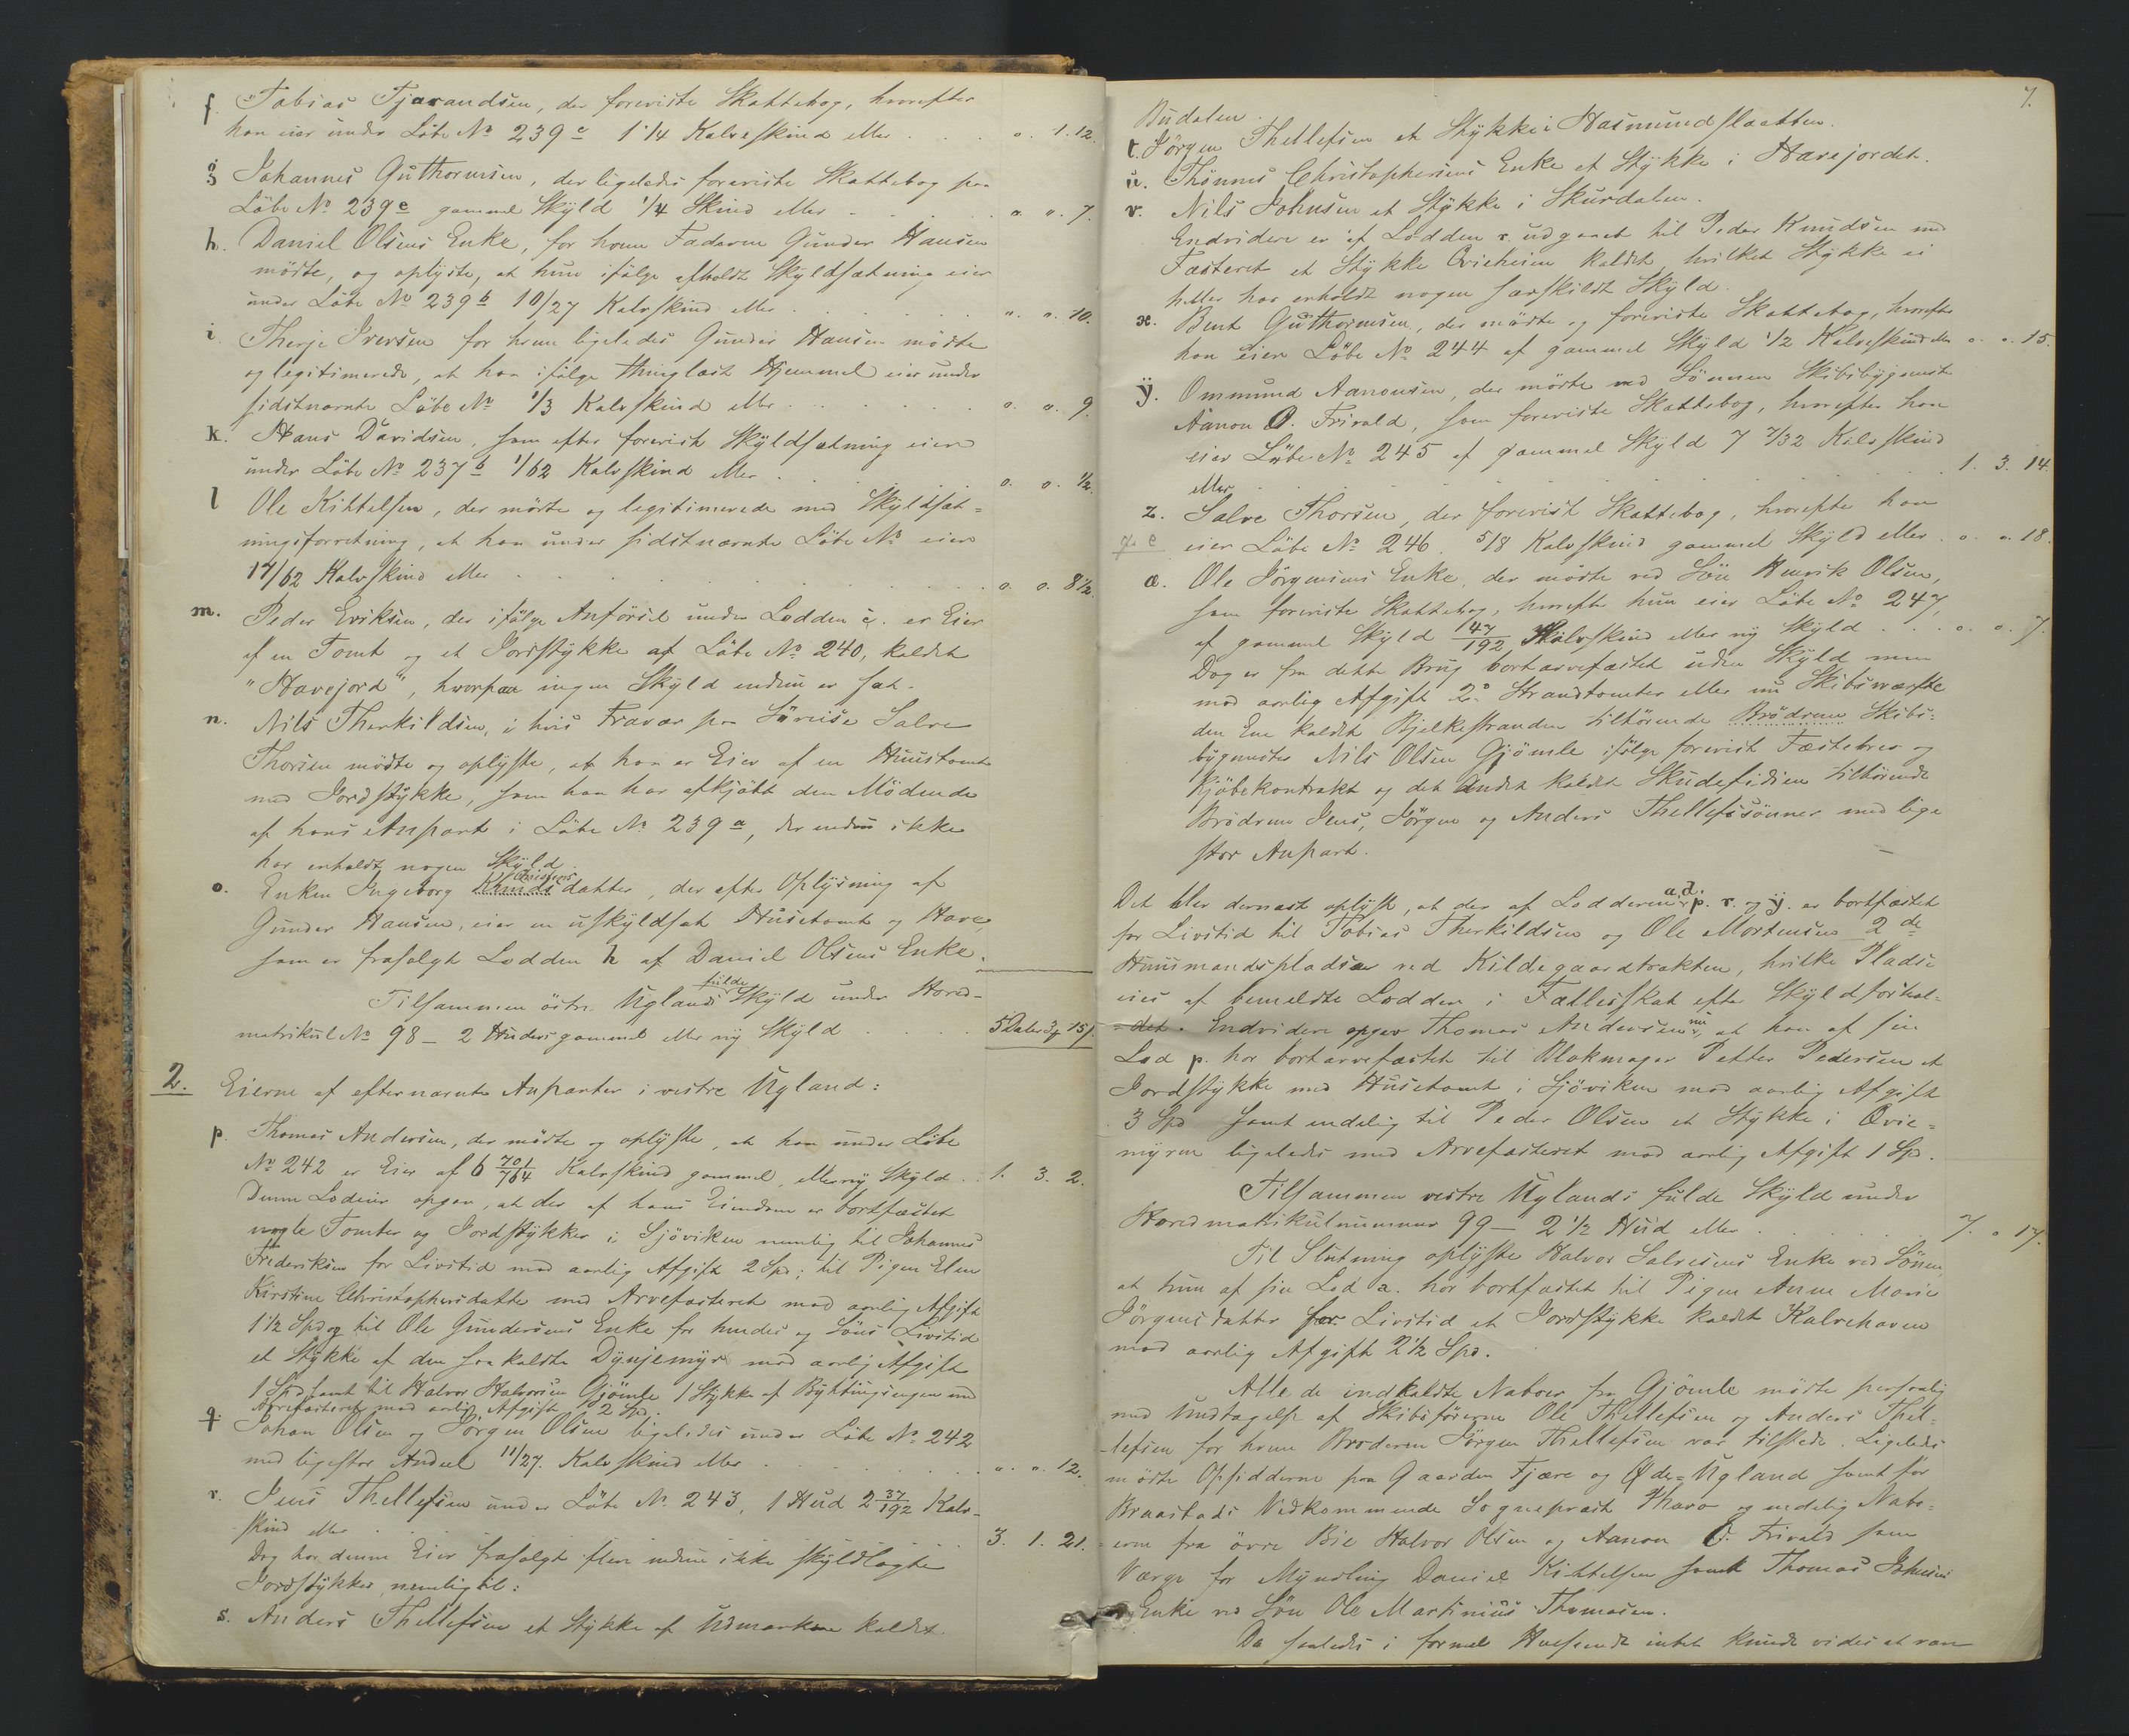 f. Tobias Tjarandsen, der foreviste Skattebog, hvorefter
han eier under Löbe No 239c 1 1/4 Kalveskind eller . . . . o. 1. 12.
g Johannes Guthormsen, der ligeledes foreviste Skattebog paa
Löbe No 239e gammel Skyld 1/4 Skind eller . . . . . . o. o. 7.
h. Daniel Olsens Enke, for hvem Faderen Gunder Hansen
mödte, og oplyste, at hun ifölge afholdt Skyldsætning eier
under Löbe No 239b 10/27 Kalvskind eller . . . . . . o. o. 10.
i. Therje Iversen for hvem ligeledes Gunder Hansen mödte
og legitimerede, at han ifölge thinglæst Hjemmel eier under
sidstnævnte Löbe No 1/3 Kalvskind eller . . . . . . . o. o. 9.
k. Hans Davidsen, som efter forevist Skyldsætning eier
under Löbe No 237b 1/62 Kalvskind eller . . . . . . o. o. 1/2.
l Ole Kittelsen, der mödte og legitimerede med Skyldsæt=
ningsforretning, at han under sidstnævnte Löbe No eier
17/62 Kalvskind eller . . . . . . . . . . o. o. 8 1/2.
m. Peder Eriksen, der ifölge Anförsel under Lodden c. er Eier
af en Tomt og et Jordstykke af Löbe No 240, kaldet
"Havejord", hvorpaa ingen Skyld endnu er sat.
n. Nils Therkildsen, i hvis Fravær paa Söreise Salve
Thorsen mödte og oplyste, at han er Eier af en Huustomt
med Jordstykke, som han har afkjöbt den Mödende
af hans Anpart i Löbe No 239a, der endnu ikke
har erholdt nogen Skyld.
o. Enken Ingeborg Knudsdatter, der efter Oplysning af
Gunder Hansen, eier en uskyldsat Husetomt og Have,
som er frasolgt Lodden h af Daniel Olsens Enke.
Tilsammen östre Uglands fulde Skyld under Hoved-
matrikul No 98 - 2 Huders gammel eller ny Skyld . . . . 5 Daler 3 15
2. Eierne af efternævnte Anparter i vestre Ugland:
p. Thomas Andersen, der mödte og oplyste, at han under Löbe
No 242 er Eier af 6 701/704 Kalvskind gammel, eller ny Skyld . . 1. 3. 2.
Denne Lodeier opgav, at der af hans Eiendom er bortfæstet
nogle Tomter og Jordstykker i Sjöviken nemlig til Johannes
Frederiksen for Livstid mod aarlig Afgift 2 Spd; til Pigen Elen
Kirstine Christophersdatter med Arvefæsteret mod aarlig Afgift
1 1/2 Spd og til Ole Gundersens Enke for hendes og Söns Livstid
et Stykke af den saa kaldte Dynjemyr mod aarlig Afgift
1 Spd samt til Halvor Halvorsen Gjömle 1 Stykke af Bythingsengen med
Arvefæsteret mod aarlig Afgift 2 Spd.
q. Johan Olsen og Jörgen Olsen ligeledes under Löbe No 242
med ligestor Andeel 11/27. Kalvskind eller . . . . . . o. o. 12.
r. Jens Thellefsen under Löbe No 243, 1 Hud 2 37/192 Kalv-
skind eller . . . . . . . . . . 3. 1. 21.
Dog har denne Eier frasolgt flere endnu ikke skyldlagte
Jordstykker, nemlig til:
s. Anders Thellefsen et Stykke af Udmarken kaldet
7.
Budalen.
t. Jörgen Thellefsen et Stykke i Hasmundslaatten.
u. Thönnes Christophersens Enke et Stykke i Havejordet.
v. Nils Johnsen et Stykke i Skurdalen.
Endvidere er af Lodden r. udgaaet til Peder Knudsen med
Fæsteret et Stykke Qvieheien kaldet, hvilket Stykke ei
heller har erholdt nogen særskildt Skyld.
x. Bent Guthormsen, der mödte og foreviste Skattebog, hvorefter
han eier Löbe No 244 af gammel Skyld 1/2 Kalveskind eller o. o. 15.
y. Ommund Aanonsen, der mödte ved Sönnen Skibsbygmester
Aanon O. Frivold, som foreviste Skattebog, hvorefter han
eier Löbe No 245 af gammel Skyld 7 7/32 Kalvskind
eller . . . . . . . . . . 1. 3. 14.
z. Salve Thorsen, der forevist Skattebog, hvorefter han
eier Löbe No 246. 5/8 Kalvskind gammel Skyld eller . o. o. 18.
æ. Ole Jörgensens Enke, der mödte ved Sön Henrik Olsen,
som foreviste Skattebog, hvorefter hun eier Löbe No 247,
af gammel Skyld 47/192 Kalvskind eller ny Skyld . . . o. o. 7.
Dog er fra dette Brug bortarvefæstet uden Skyld men
mod aarlig Afgift 2de Strandtomter eller nu Skibsværfte
den Ene kaldet Bjelkestranden tilhörende Brödrene Skibs-
bygmester Nils Olsen Gjömle ifölge forevist Fæstebrev og
Kjöbekontrakt og det Andet kaldet Skudesidien tilhörende
Brödrene Jens, Jörgen og Anders Thellefssönner med lige
stor Anpart.
Det blev dernæst oplyst, at der af Lodderne a. d. p. r. og y. er bortfæstet
for Livstid til Tobias Therkildsen og Ole Mortensen 2de
Huusmandspladse ved Kildegaardtrakten, hvilke Pladse
eies af bemeldte Lodder i Fællesskab efter Skyldforhol-
-det. Endvidere opgav Thomas Andersen nu, at han af sin
Lod p. har bortarvefæstet til Blokmager Petter Pedersen et
Jordstykke med Husetomt i Sjöviken mod aarlig Afgift
3 Spd samt endelig til Peder Olsen et Stykke i Qvie=
myren ligeledes med Arvefæsteret mod aarlig Afgift 1 Spd.
Tilsammen vestre Uglands fulde Skyld under
Hovedmatrikulnummer 99 - 2 1/2 Hud eller . . . . . 7. o 17.
Til Slutning oplyste Halvor Salvesens Enke ved Sönnen,
at hun af sin Lod a. har bortfæstet til Pigen Anne Marie
Jörgensdatter for Livstid et Jordstykke kaldet Kalvehaven
mod aarlig Afgift 2 1/2 Spd.
Alle de indkaldte Naboer fra Gjömle mödte personlig
med Undtagelse af Skibsförerne Ole Thellefsen og Anders Thel-
-lefsen for hvem Broderen Jörgen Thellefsen var tilstede. Ligeledes
mödte Opsidderne paa Gaarden Fjære og Öde=Ugland samt for
Braastads Vedkommende Sogneprest Thavo og endelig Nabo=
=erne fra övre Bie Halvor Olsen og Aanon O. Frivold som
Værge for Myndling Daniel Kittelsen samt Thomas Johnsens
Enke ved Sön Ole Martinius Thomasen.
Da saaledes i formel Henseende intet kunde vides at være